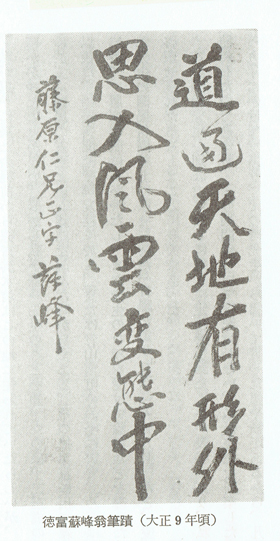 道通天地有形外
思入風雲変態中
藤原仁兄正字 蘇峰
徳富蘇峰翁筆蹟（大正9年頃）